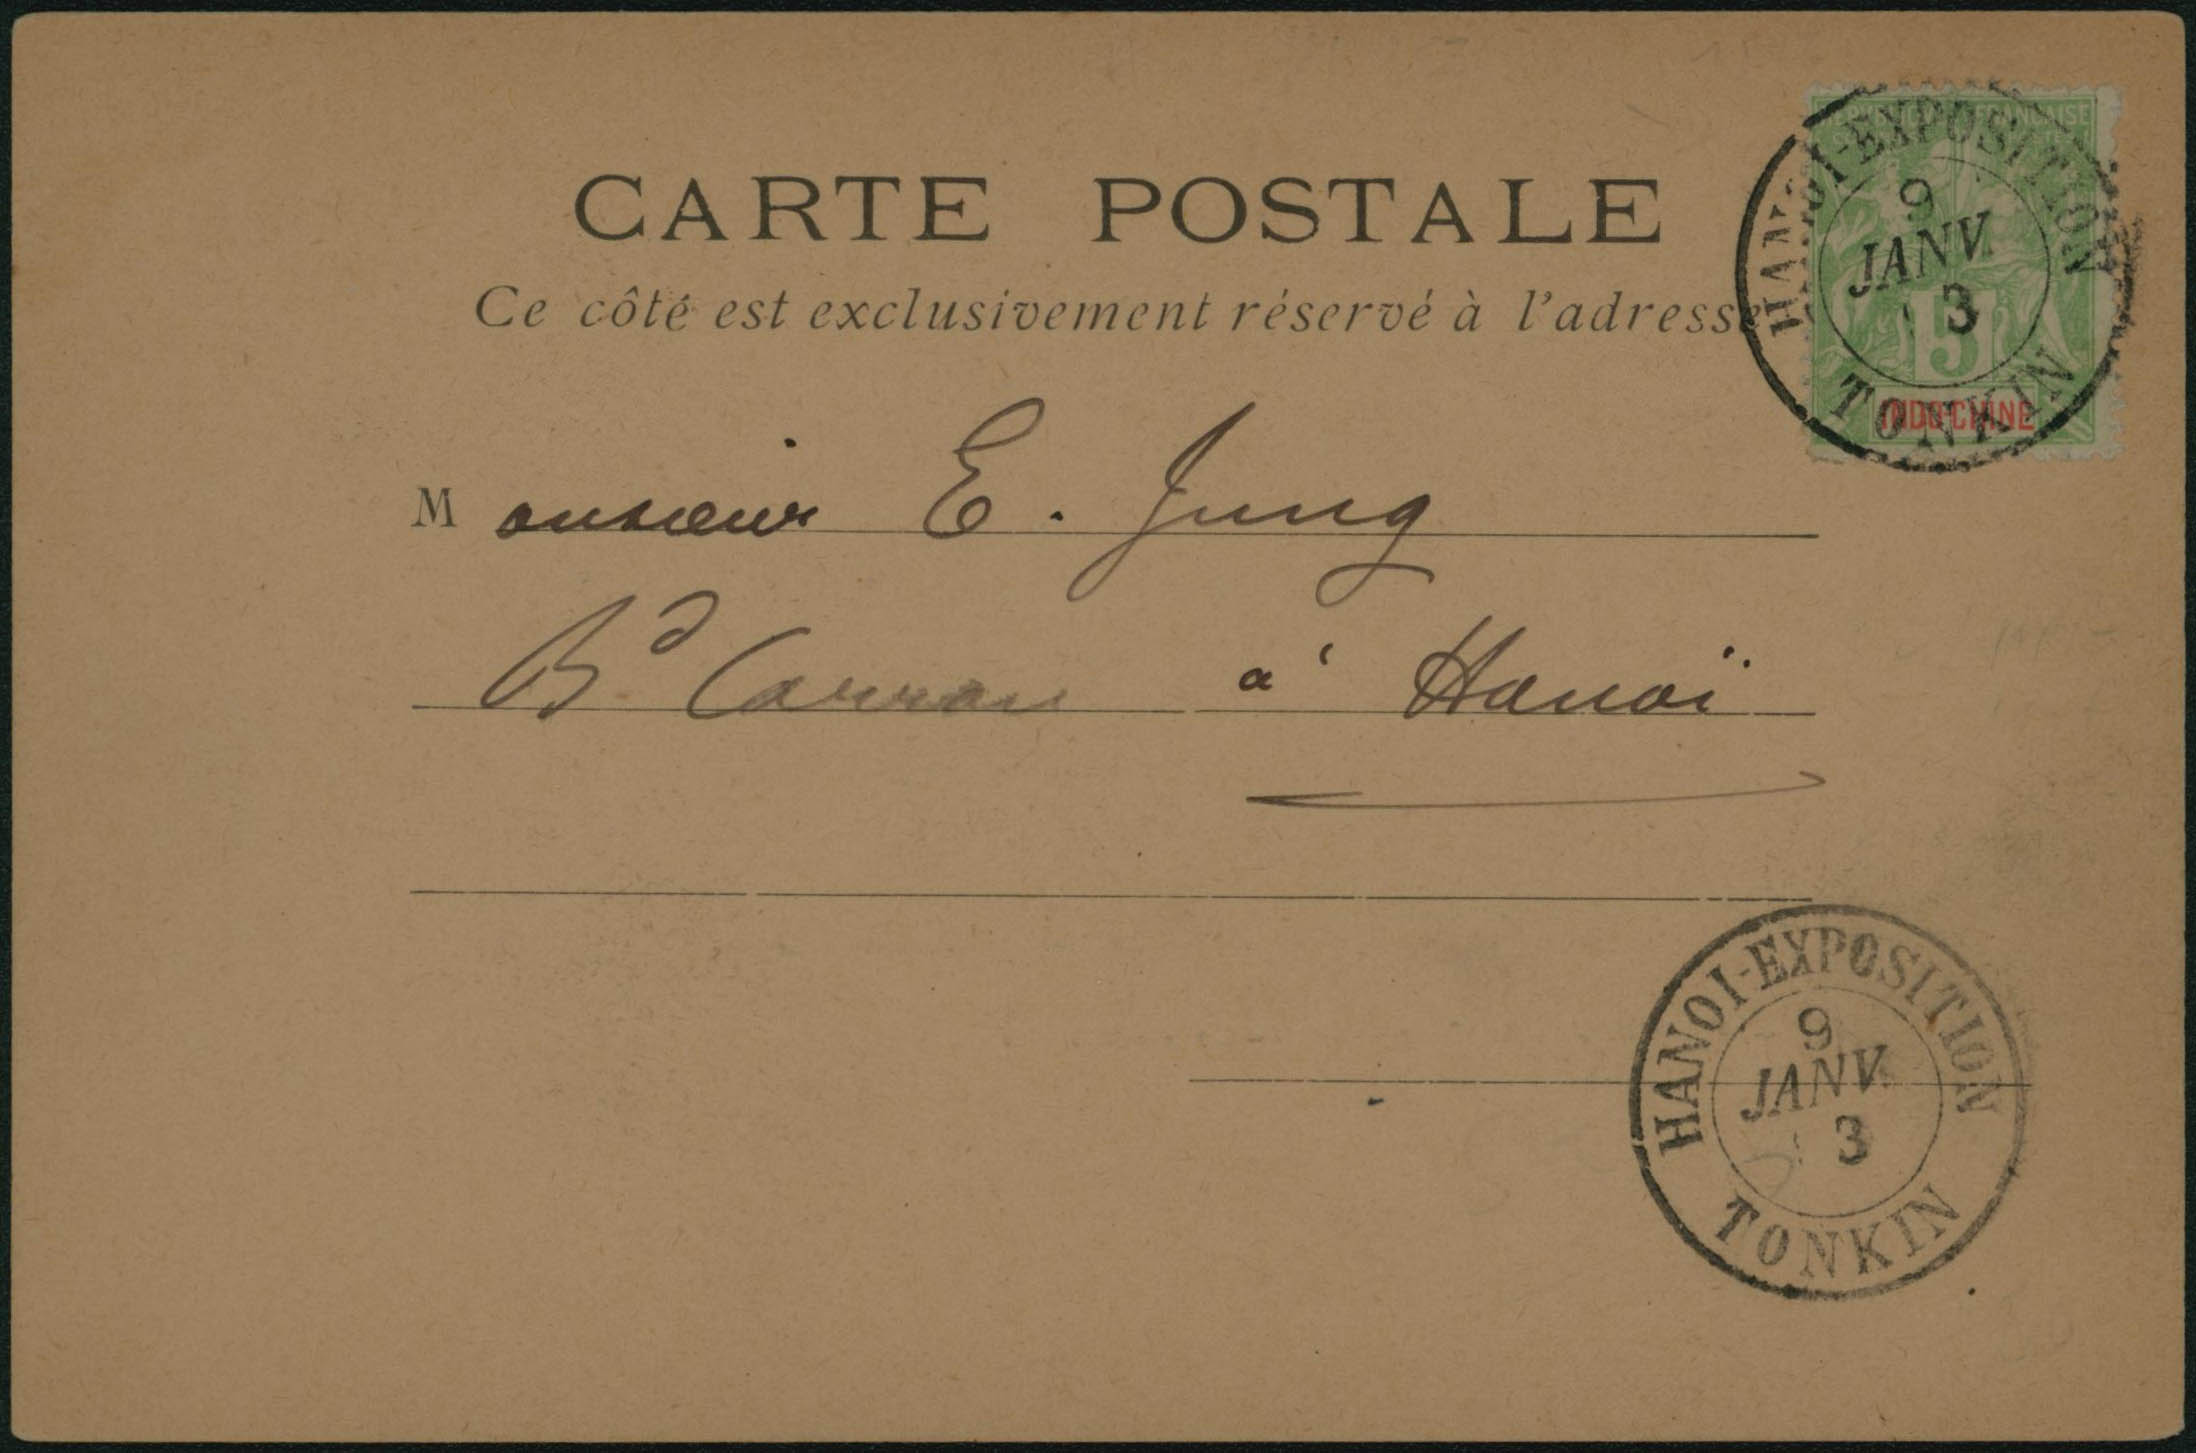 CARTE POSTALE
Ce côté est exclusivement réservé à l'adresse
HANOI-EXPOSITION
9
JANV.
3
TONKIN
5
INDO-CHINE
Monsieur E. Jung
Bd Carreau à Hanoï
HANOI-EXPOSITION
9
JANV.
3
TONKIN